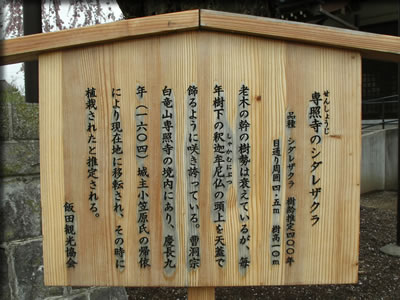 せんしょうじ
専照寺のシダレザクラ
品種 シダレザクラ 樹齢推定四〇〇年
目通り周囲四・五m 樹高一〇m
老木の幹の樹勢は衰えているが、毎
しゃかむにぶつ
年樹下の釈迦牟尼仏の頭上を天蓋で
飾るように咲き誇っている。曹洞宗
白竜山専照寺の境内にあり、慶長九
年(一六〇四)城主小笠原氏の帰依
により現在地に移転され、その時に
植栽されたと推定される。
飯田観光協会